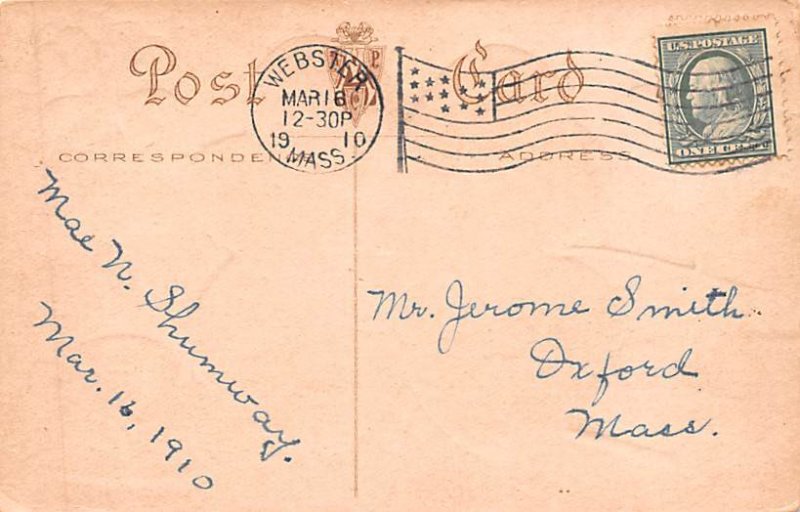 Post Card
WEBSTER
MAR 16
12-30P
19 10
MASS.
U.S. POSTAGE
ONE CENT
CORRESPONDENCE
ADDRESS
Mae N. Shumway.
Mar. 16, 1910
Mr. Jerome Smith
Oxford
Mass.